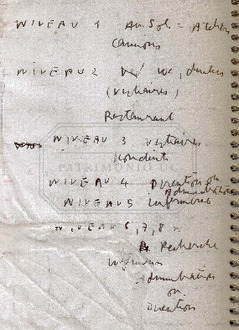 NIVEAU 1 Au Sol = Atelier
Camions
NIVEAU 2 W WC, douches
(vestiaires)
Restaurant
NIVEAU 3 vestiaires
NIVEAU 4 Direction ou
Administration
NIVEAU 5 infirmerie
NIVEAU 6, 7, 8
Recherche
Administration
ou
Direction
PATRIMONIO